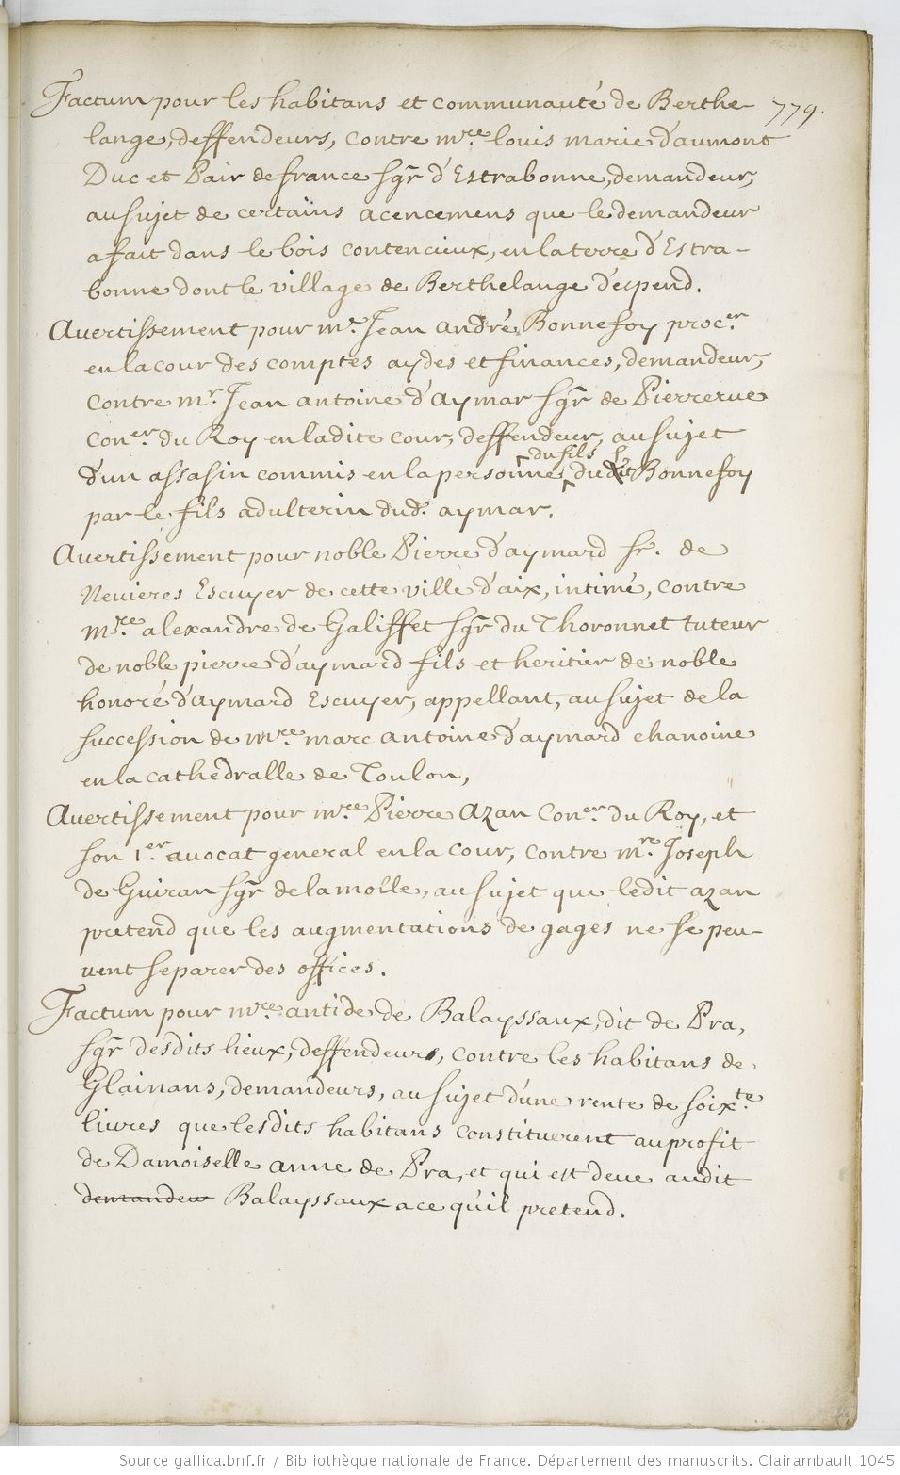 779.
Factum pour les habitans et communauté de Berthe-
lange, deffendeurs, contre mre. louis marie d'aumont
Duc et Pair de france sgr d'Estrabonne, demandeur,
au sujet de certains acencemens que le demandeur
a fait dans le bois contencieux, en la terre d'Estra-
bonne dont le village de Berthelange depend.
Avertissement pour me. Jean andré Bonnefoy procer.
en la cour des comptes aydes et finances, demandeur,
contre mr. Jean antoine d'aymar sgr de Pierrerue
Coner. du Roy en ladite cour, deffendeur, au sujet
d'un assasin commis en la personne du fils dudit Bonnefoy
par le fils adulterin dud. aymar.
Avertissement pour noble Pierre d'aymard sr. de
Nevieres Escuyer de cette ville d'aix, intimé, contre
mre. alexandre de Galiffet sgr du Thoronnet tuteur
de noble pierre d'aymard fils et heritier de noble
honoré d'aymard Escuyer, appellant, au sujet de la
succession de mre. marc antoine d'aymard chanoine
en la cathedralle de Toulon,
Avertissement pour mre. Pierre Azan Coner. du Roy, et
son 1.er avocat general en la cour, contre mre. Joseph
de Guiran sgr de la molle, au sujet que ledit azan
pretend que les augmentations de gages ne se peu-
vent separer des offices.
Factum pour mre. antide de Balayssaux, dit de Pra,
sgr desdits lieux, deffendeurs, contre les habitans de
Glainans, demandeurs, au sujet d'une rente de soixte.
livres que lesdits habitans constituerent au profit
de Damoiselle anne de Pra, et qui est deue audit
demandeur Balayssaux a ce qu'il pretend.
Source gallica.bnf.fr / Bibliothèque nationale de France. Département des manuscrits. Clairambault 1045